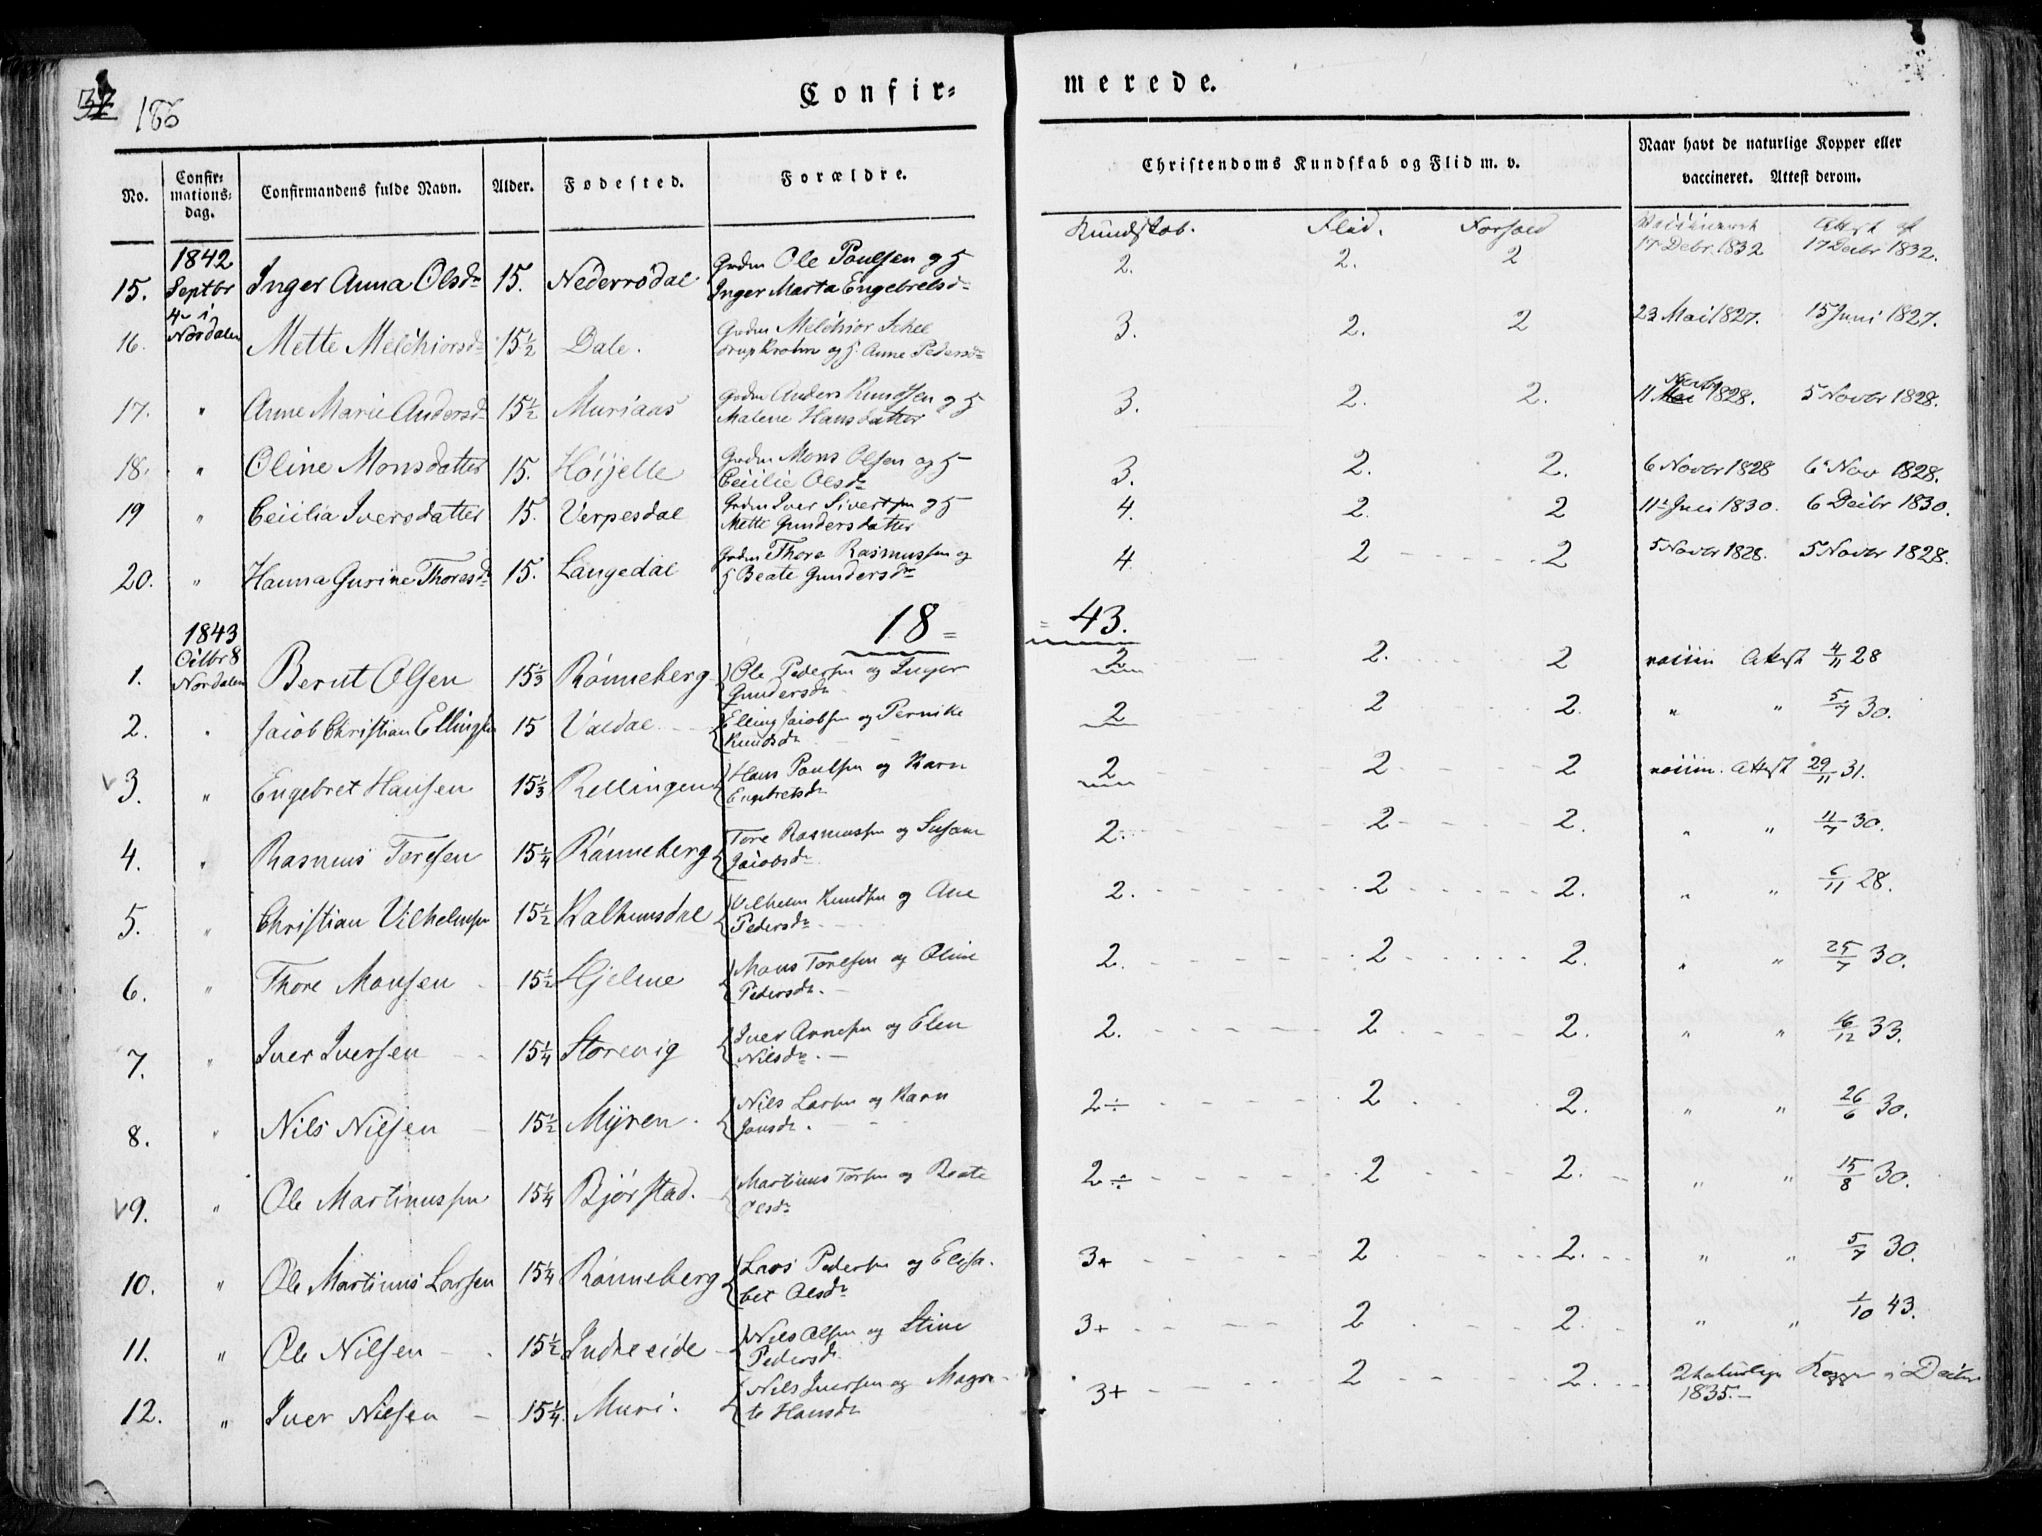 186
Confir= merede.
No. Confirmationsdag. Confirmandens fulde Navn. Alder. Fødested. Forældre. Christendoms Kundskab og Flid m. v. Naar havt de naturlige Kopper eller vaccineret. Attest derom.
Kundskab. Flid. Forhold Attest af
1842
15. Septbr 4 i Nordalen Inger Anna Olsdr 15. Nederrødal Gaardm Ole Poulsen og H Inger Marta Engebretsdr 2. 2. 2 17 Debr 1832 17 Decbr 1832.
16. Mette Melchiorsdr 15½ Dale. Gaardm Melchior Schee Krohn og H. Anne Pedersdr 3. 2. 2 23 Mai 1827. 15 Juni 1827.
17. " Anne Marie Andersdr 15½ Muriaas Gaardm Anders Knudsen og H Malene Hansdatter 3. 2. 2. 11 Novbr 1828. 5 Novbr 1828.
18. " Oline Monsdatter 15. Høijelle Gaardm Mons Olsen og H Cecilie Olsdr 3. 2. 2. 6 Novbr 1828 6 Nov 1828.
19 " Cecilia Iversdatter 15. Verpesdal Gaardm Iver Sivertsen og H Mette Gundersdatter 4. 2. 2 11 Juni 1830. 6 Decbr 1830.
20. " Hanna Gurine Thoresdr 15. Langedal Gaardm Thore Rasmussen og H Beate Gundersdr 4. 2 2 5 Novbr 1828. 5 Novbr 1828.
18 = = 43.
1843
1. Octbr 8 Nordalen Bernt Olsen 15⅓ Rønneberg Ole Pedersen og Inger Gundersdr 2 2. 2 vaccin Attest 4/11 28
2. " Jacob Christian Ellingsen 15 Valdal Elling Jacobsen og Pernike Knudsdr 2 2 2. " " 5/7 30.
3. " Engebret Hansen 15⅓ Rellingen Hans Poulsen og Karn Engebretsdr 2 2 2 vaccin. Attest 29/11 31.
4. " Rasmus Toresen 15¼ Rønneberg Tore Rasmussen og Susane Jacobsdr 2. 2 2. " " 4/7 30.
5. " Christian Vilhelmsen 15½ Kalhusdal Vilhelm Knudsen og Ane Pedersdr 2. 2 2. " " 6/11 28.
6. " Thore Monsen 15½ Hjelme Mons Toresen og Oline Pedersdr. 2. 2 2. " " 25/7 30.
7. " Iver Iversen 15¼ Storevig Iver Arnesen og Elen Nilsdr. 2. 2 2. " " 16/12 33.
8. " Nils Nilsen 15½ Myren. Nils Larsen og Karn Jonsdr. 2÷ 2 2. " " 26/6 30.
9. " Ole Martinussen 15¼ Bjørstad. Martinus Torsen og Beate Olsdr 2÷ 2 2. " " 15/8 30.
10. " Ole Martinus Larsen 15¼ Rønneberg Lars Pedersen og Elisabet Olsdr 3+ 2 2. " " 5/7 30.
11. " Ole Nilsen 15½ Indreeide Nils Olsen og Stine Pedersdr 3+ 2 2. " " 1/10 43.
12. " Iver Nilsen 15¼ Muri. Nils Iversen og Magrete Hansdr 3+ 2 2. naturlige Kopper i 1835.